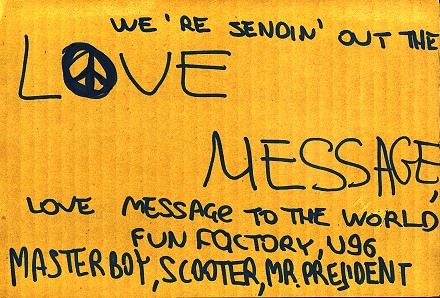 WE'RE SENDIN' OUT THE
LOVE
MESSAGE,
LOVE MESSAGE TO THE WORLD
FUN FACTORY, U96
MASTERBOY, SCOOTER, MR. PRESIDENT